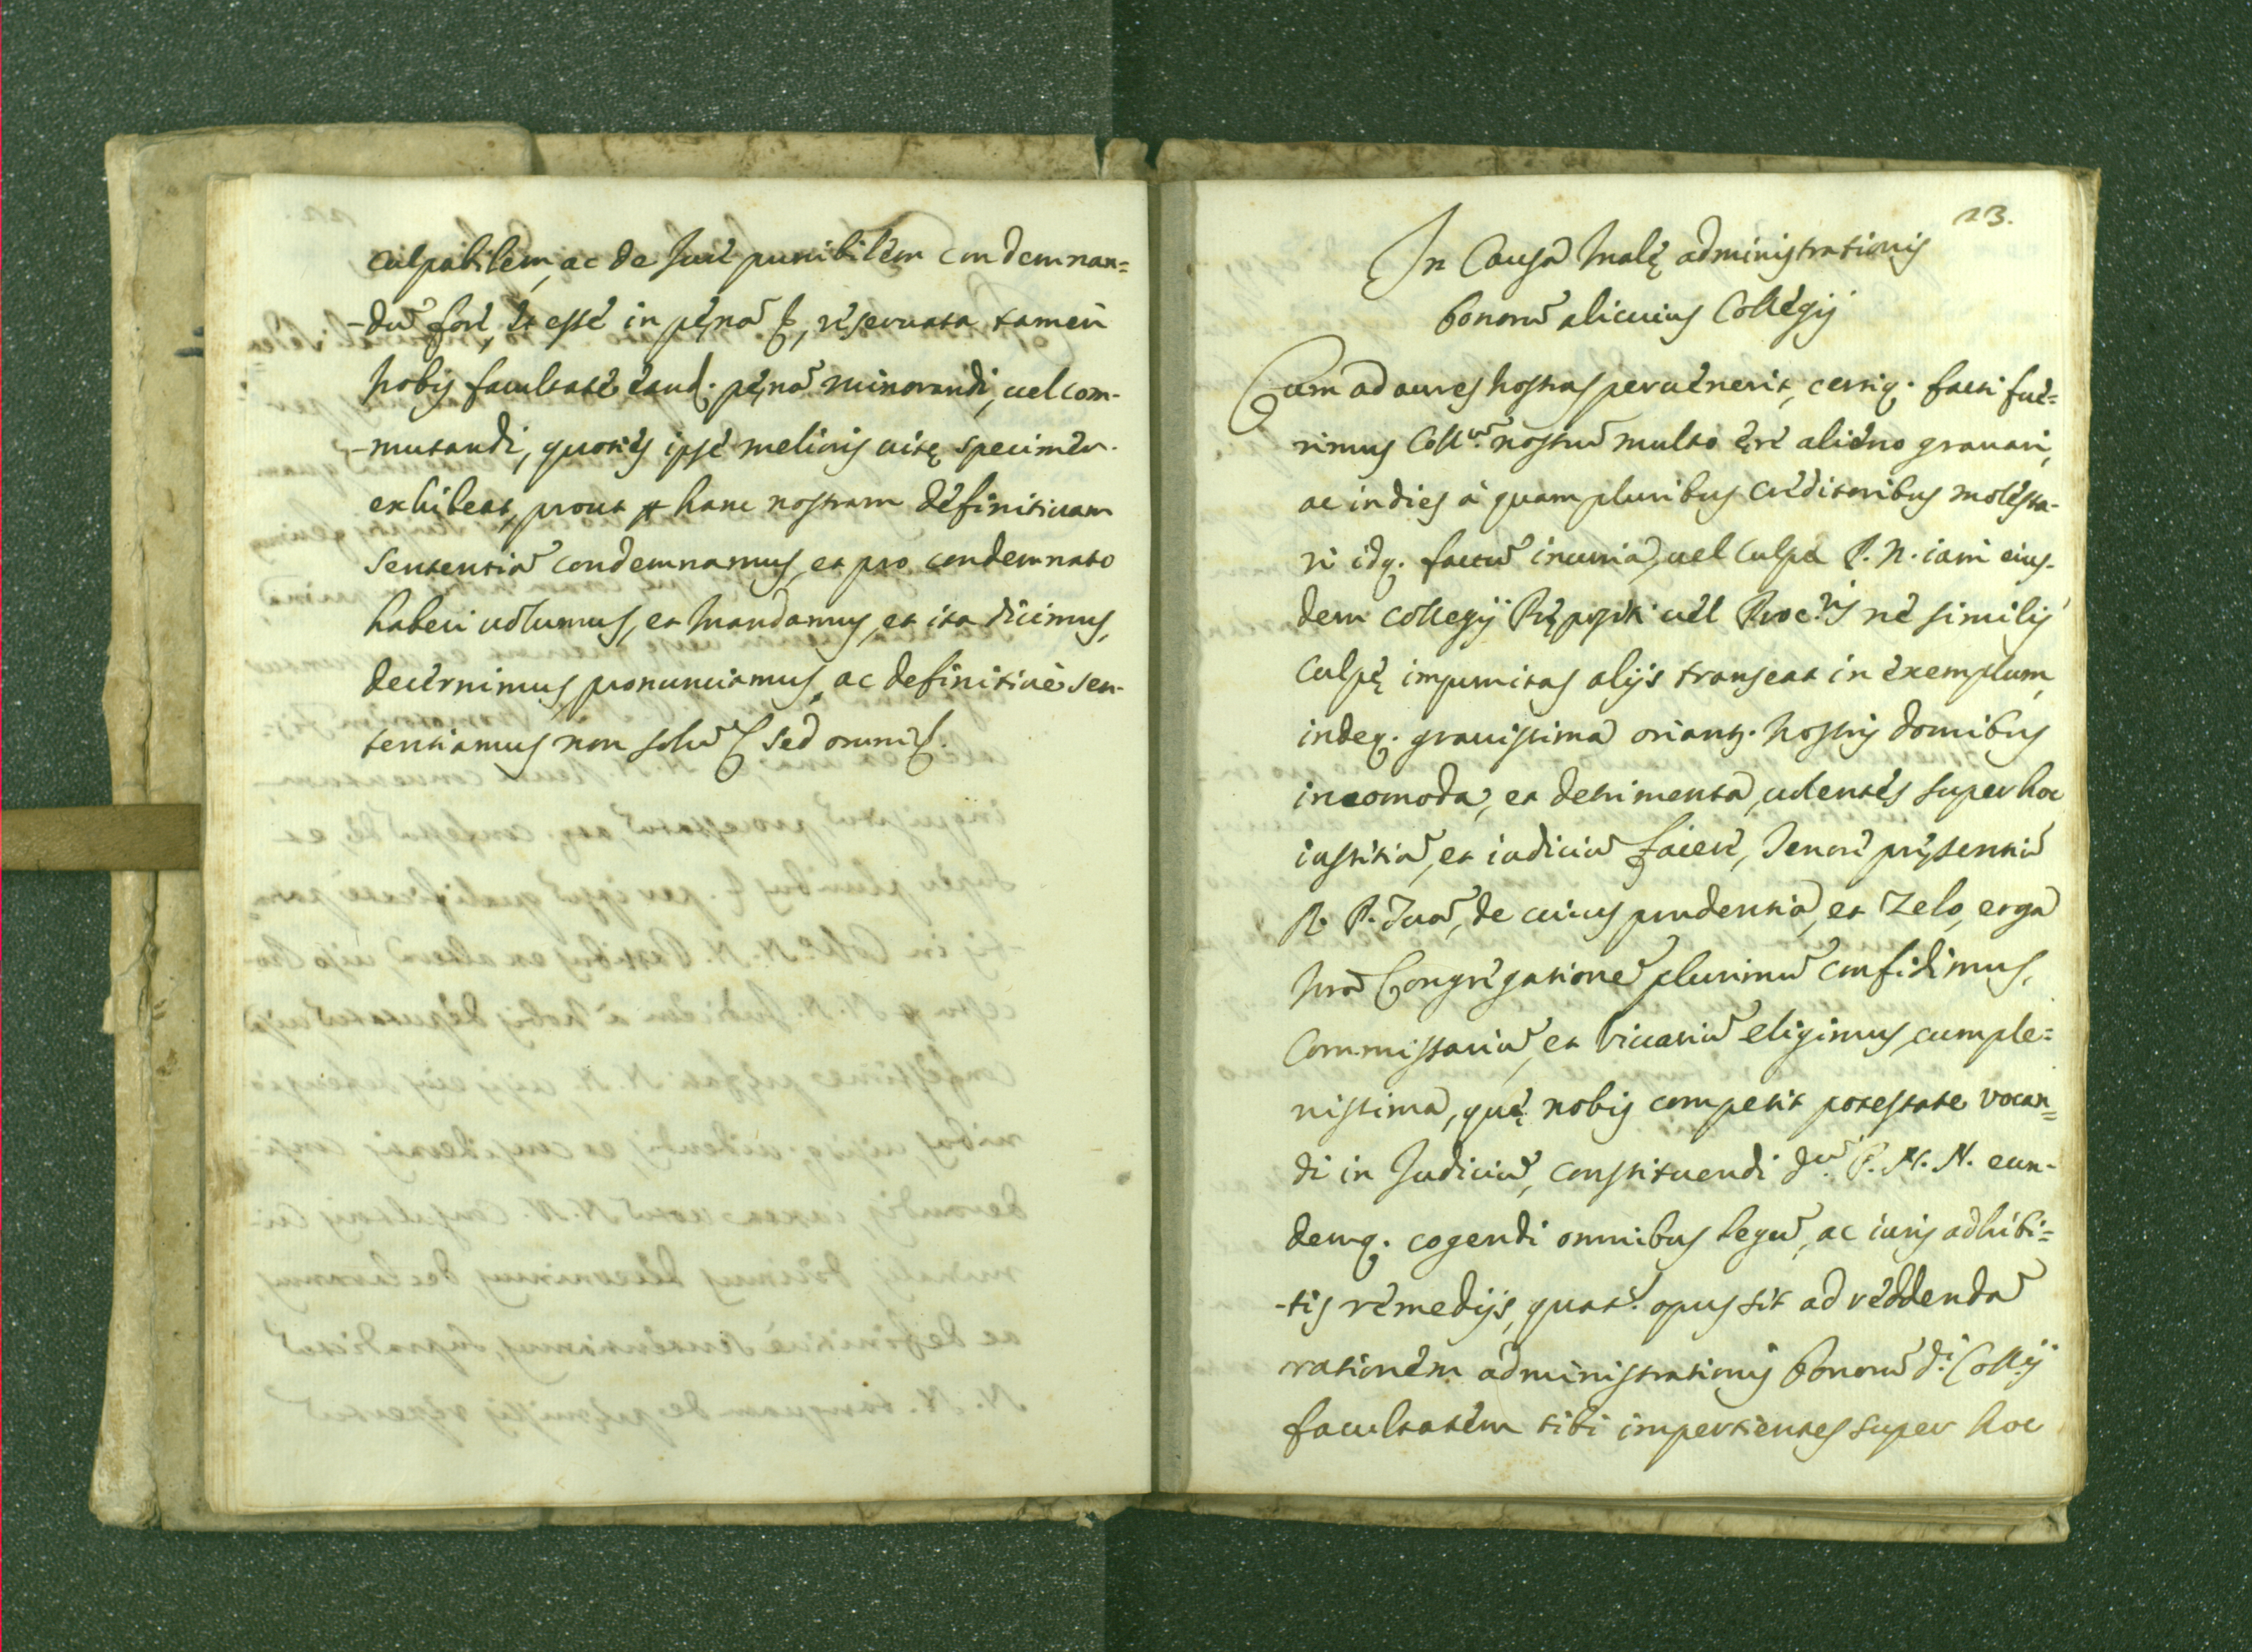 culpabilem, ac de Jure punibilem condemnan=
-dũ fore, et esse in pęnã &, reseruata tamen
nobis facultate eand. pęnã minorandi, uel com-
-mutandi, quoties ipse melioris uitę specimen
exhibeat, prout p hanc nostram definitiuam
Sententiã condemnamus, et pro condemnato
haberi uolumus, et mandamus, et ita dicimus,
decernimus, pronunciamus, ac definitiuè sen-
tentiamus non solũ & sed omni &.
23.
In Causa Malę administrationis
bonorũ alicuius Collegij
Cum ad aures nostras peruenerit, certiq. facti fue=
rimus Coll.ũ nostrũ multo ęre alieno grauari,
ac indies à quam pluribus creditoribus molesta-
ri idq. factũ incuria, uel culpa P. N. iam eius-
dem Collegij Prępositi uel Proc.ris ne similis
culpę impunitas alijs transeat in exemplum,
indeq. grauissima oriantr. nostris domibus
incomoda, et detrimenta, uolentes super hoc
iustitiã, et iudiciũ facere, Tenore pręsentiũ
R. P. Tuã, de cuius prudentia, et Zelo, erga
nrã Congregationẽ plurimũ confidimus,
Commissariũ, et Vicariũ eligimus, cum ple=
nissima, quę nobis competit potestate vocan=
di in Judiciũ, constituendi d.ũ P. N. N. eun-
demq. cogendi omnibus legũ, ac iuris adhibi=
-tis remedijs, quat.s opus sit ad reddendã
rationem administrationis bonorũ d.i Coll.ij
facultatem tibi impertientes super hoc